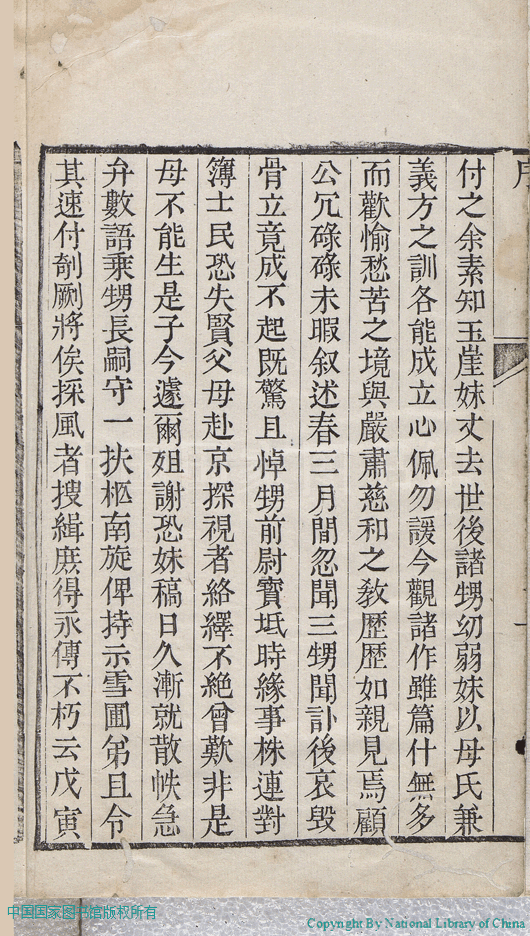 付之余素知玉崖妹丈去世後諸甥幼弱妹以母氏兼
義方之訓各能成立心佩勿諼今觀諸作雖篇什無多
而歡愉愁苦之境與嚴肅慈和之教歷歷如親見焉顧
公冗碌碌未暇叙述春三月間忽聞三甥聞訃後哀毀
骨立竟成不起既驚且悼甥前尉寶坻時緣事株連對
簿士民恐失賢父母赴京探視者絡繹不絕曾歎非是
母不能生是子今遽爾殂謝恐妹稿日久漸就散帙急
弁數語乘甥長嗣守一扶柩南旋俾持示雪圃弟且令
其速付剞劂將俟採風者搜緝庶得永傳不朽云戊寅
中国国家图书馆版权所有
Copyright By National Library of China